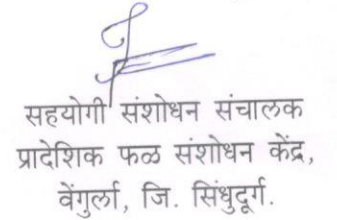 सहयोगी संशोधन संचालक
प्रादेशिक फळ संशोधन केंद्र,
वेंगुर्ला, जि. सिंधुदूर्ग.